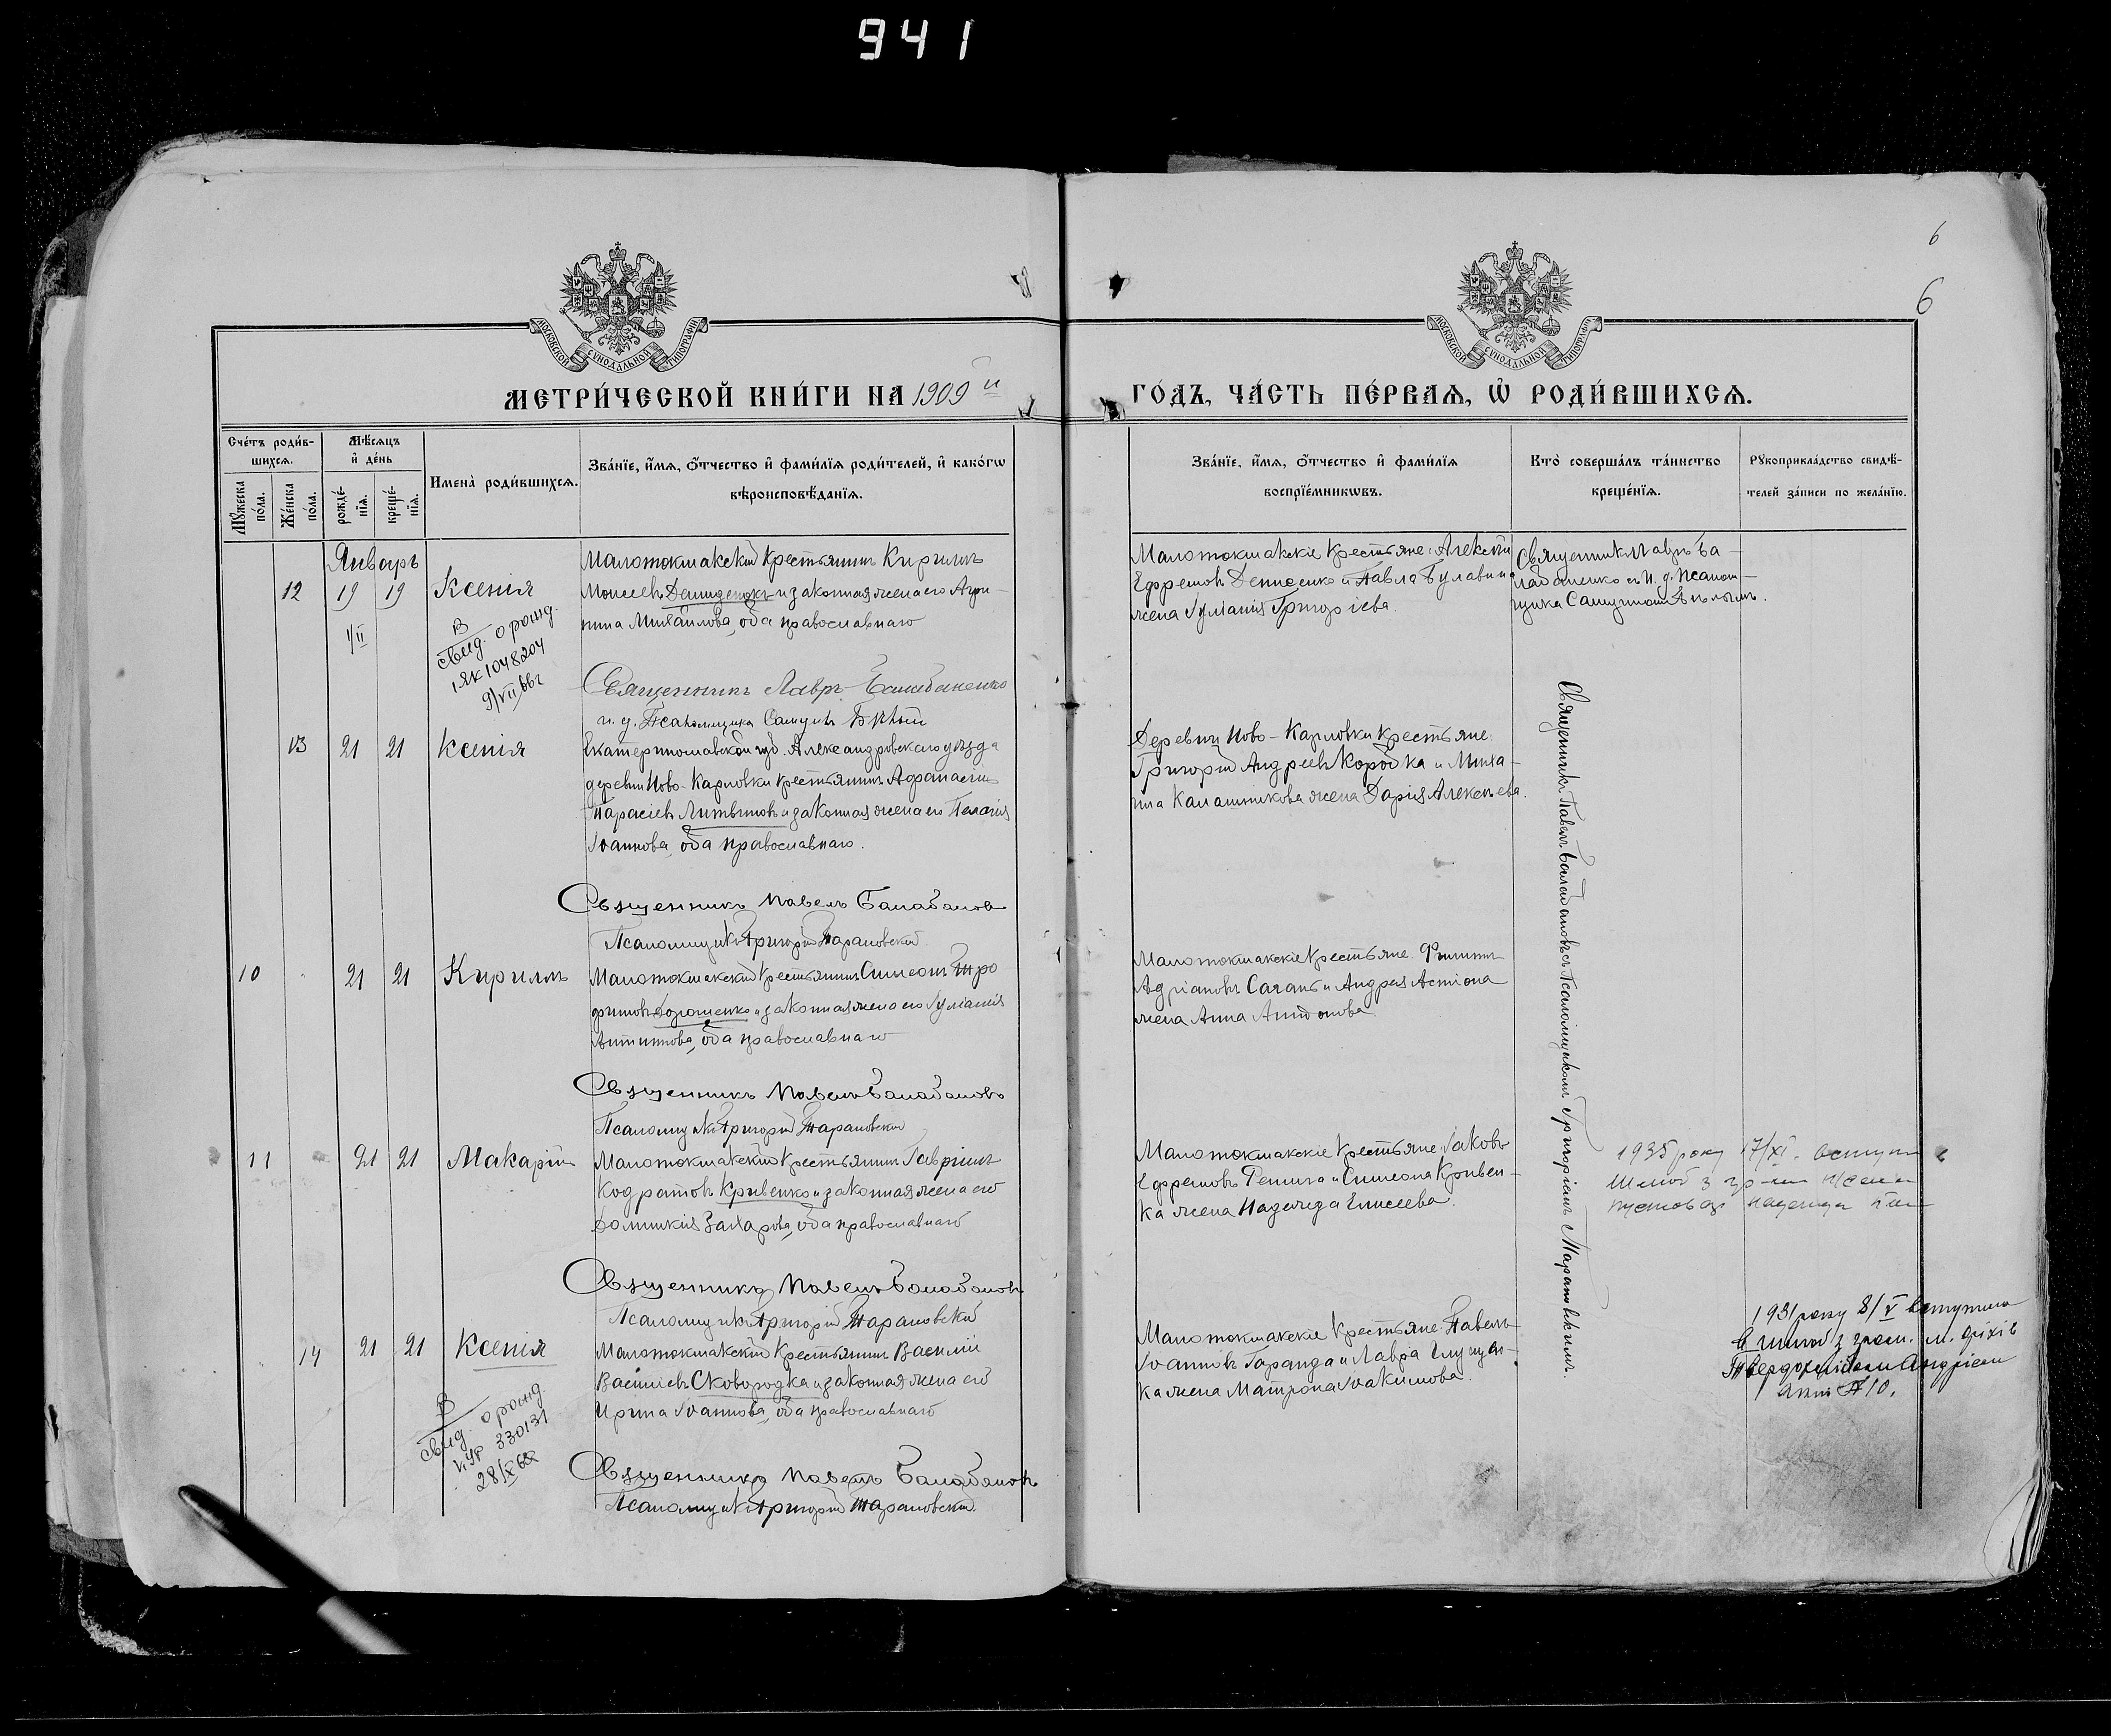 941
6
6
МОСКОВСКОЙ СѴНОДАЛЬНОЙ ТИПОГРАФІИ
МОСКОВСКОЙ СѴНОДАЛЬНОЙ ТИПОГРАФІИ
МЕТРИ́ЧЕСКОЙ КНИ́ГИ НА 1909 й
ГО́ДЪ, ЧА́СТЬ ПЕ́РВАѦ, Ѡ҆ РОДИ́ВШИХСѦ.
Сче́тъ роди́в-
шихсѧ.
Мꙋ́жеска по́ла.
Же́нска по́ла.
Мѣ́сѧцъ
и҆ де́нь
рожде́-
нїѧ.
креще́-
нїѧ.
Имена̀ роди́вшихсѧ.
Зва́нїе, и҆́мѧ, ѻ҆́тчество и҆ фами́лїѧ роди́телей, и҆ како́гѡ
вѣроисповѣ́данїѧ.
Зва́нїе, и҆́мѧ, ѻ҆́тчество и҆ фами́лїѧ
воспрїе́мникѡвъ.
Кто̀ соверша́лъ та́инство
креще́нїѧ.
Рꙋкоприкла́дство свидѣ́-
телей за́писи по жела́нїю.
Январь
12 19 19 Ксенія
1/II
В
свид. о рожд.
IЯК 1048204
9/VII 66г
Малотокмакскій крестьянинъ Кириллъ
Моисеевъ Давиденокъ и законная жена его Агри-
пина Михайлова, оба православнаго
Священникъ Лавръ Балабаненко
и. д. Псаломщика Самуилъ Бѣлый
Малотокмакскіе крестьяне: Алексій
Ефремовъ Денисенко и Павла Булавина
жена Іуліанія Григоріева.
Священник Лавръ Ба-
лабаненко съ и. д. Псалом-
щика Самуиломъ Бѣлымъ.
13 21 21 Ксенія
Екатеринославской губ. Александровскаго уѣзда
деревни Ново-Карловки крестьянинъ Афанасій
Тарасіевъ Литвиновъ и законная жена его Пелагія
Іоаннова, оба православнаго.
Священникъ Павелъ Балабановъ
Псаломщикъ Григорій Тарановскій
Деревни Ново-Карловки крестьяне:
Григорій Андреевъ Коробка и Миха-
ила Калашникова жена Дарія Алексѣева.
Священникъ Павелъ Балабановъ съ Псаломщикомъ Григоріемъ Тарановскимъ.
10 21 21 Кириллъ
Малотокмакскій крестьянинъ Симеонъ Тро
фимовъ Дорошенко и законная жена его Іуліанія
Антипова, оба православнаго
Священникъ Павелъ Балабановъ
Псаломщикъ Григорій Тарановскій
Малотокмакскіе крестьяне: Филиппъ
Адріановъ Саганъ и Андрея Асміона
жена Анна Антонова
11 21 21 Макарій
Малотокмакскій крестьянинъ Гавріилъ
Кодратовъ Кривенко и законная жена его
Домникія Захарова, оба православнаго
Священникъ Павелъ Балабановъ
Псаломщикъ Григорій Тарановскій
Малотокмакскіе крестьяне: Іаковъ
Ефремовъ Репига и Симеона Кривен-
ка жена Надежда Елисеева.
1935 року 17/XI. вступив
шлюб з гр-
Надежда
14 21 21 Ксенія
В
свид. о рожд.
VІУР 330131
28/X 68
Малотокмакскій крестьянинъ Василій
Васильевъ Сковородка и законная жена его
Ирина Іоаннова, оба православнаго
Священникъ Павелъ Балабановъ
Псаломщикъ Григорій Тарановскій.
Малотокмакскіе крестьяне: Павелъ
Іоанновъ Гаранда и Лавра Глущен-
ка жена Матрона Іоакимова.
1931 року 8/V вступила
в шлюб з гром. м. Оріхів
Твердохлібом Андрієм
Акт № 10.